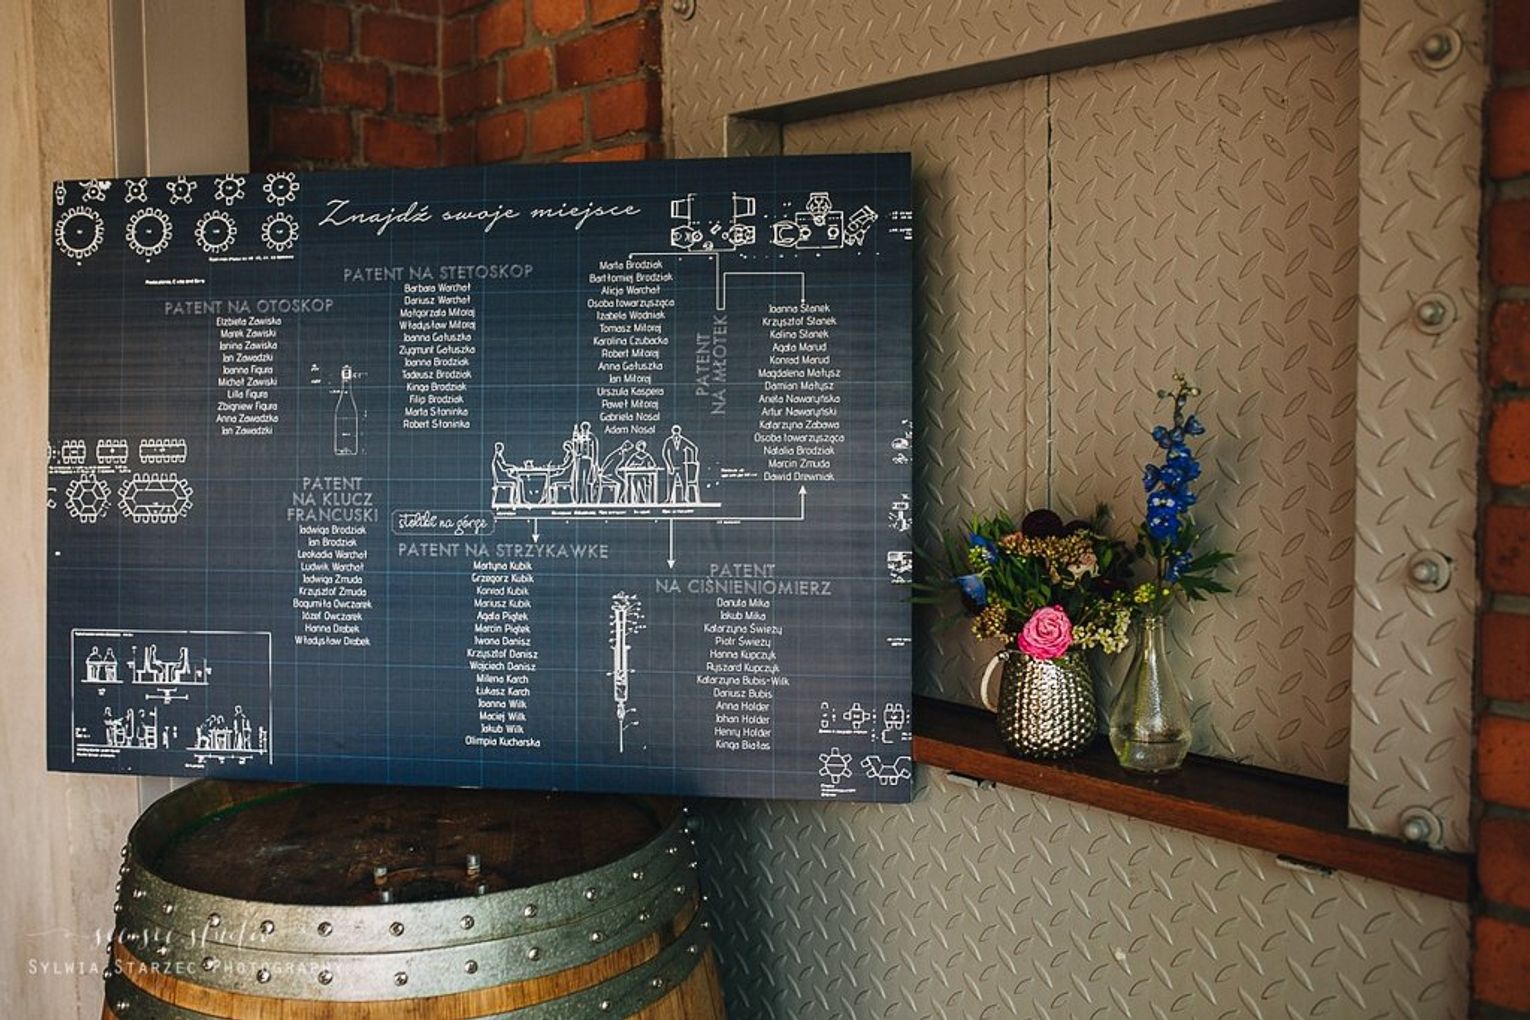 Znajdź swoje miejsce
PATENT NA OTOSKOP
Elżbieta Zawiska
Marek Zawiski
Janina Zawiska
Jan Zawadzki
Joanna Figura
Michał Zawiski
Lilla Figura
Zbigniew Figura
Anna Zawadzka
Jan Zawadzki
PATENT NA STETOSKOP
Barbara Warchoł
Dariusz Warchoł
Małgorzata Mitoraj
Władysław Mitoraj
Joanna Gałuszka
Zygmunt Gałuszka
Joanna Brodziak
Tadeusz Brodziak
Kinga Brodziak
Filip Brodziak
Marta Słoninka
Robert Słoninka
PATENT
NA MŁOTEK
Marta Brodziak
Bartłomiej Brodziak
Alicja Warchoł
Osoba towarzysząca
Izabela Woźniak
Tomasz Mitoraj
Karolina Czubacka
Robert Mitoraj
Anna Gałuszka
Jan Mitoraj
Urszula Kaspera
Paweł Mitoraj
Gabriela Nosal
Adam Nosal
Joanna Stanek
Krzysztof Stanek
Kalina Stanek
Agata Marud
Konrad Marud
Magdalena Matysz
Damian Matysz
Aneta Nawaryńska
Artur Nawaryński
Katarzyna Zabawa
Osoba towarzysząca
Natalia Brodziak
Marcin Żmuda
Dawid Drewniak
PATENT
NA KLUCZ
FRANCUSKI
Jadwiga Brodziak
Jan Brodziak
Leokadia Warchoł
Ludwik Warchoł
Jadwiga Żmuda
Krzysztof Żmuda
Bogumiła Owczarek
Józef Owczarek
Hanna Drabek
Władysław Drabek
stoliki na górze
PATENT NA STRZYKAWKE
Martyna Kubik
Grzegorz Kubik
Konrad Kubik
Mariusz Kubik
Agata Piątek
Marcin Piątek
Iwona Danisz
Krzysztof Danisz
Wojciech Danisz
Milena Karch
Łukasz Karch
Joanna Wilk
Maciej Wilk
Jakub Wilk
Olimpia Kucharska
PATENT
NA CIŚNIENIOMIERZ
Danuta Mika
Jakub Mika
Katarzyna Świeży
Piotr Świeży
Hanna Kupczyk
Ryszard Kupczyk
Katarzyna Bubis-Wilk
Dariusz Bubis
Anna Holder
Johan Holder
Henry Holder
Kinga Białas
SYLWIA STARZEC PHOTOGRAPHY